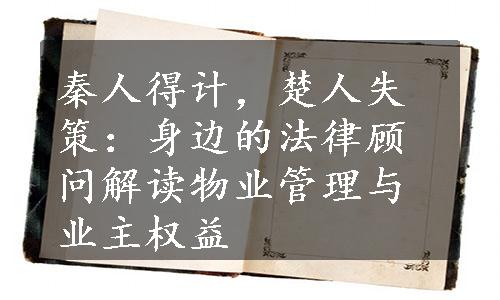 秦人得计，楚人失
策：身边的法律顾
问解读物业管理与
业主权益